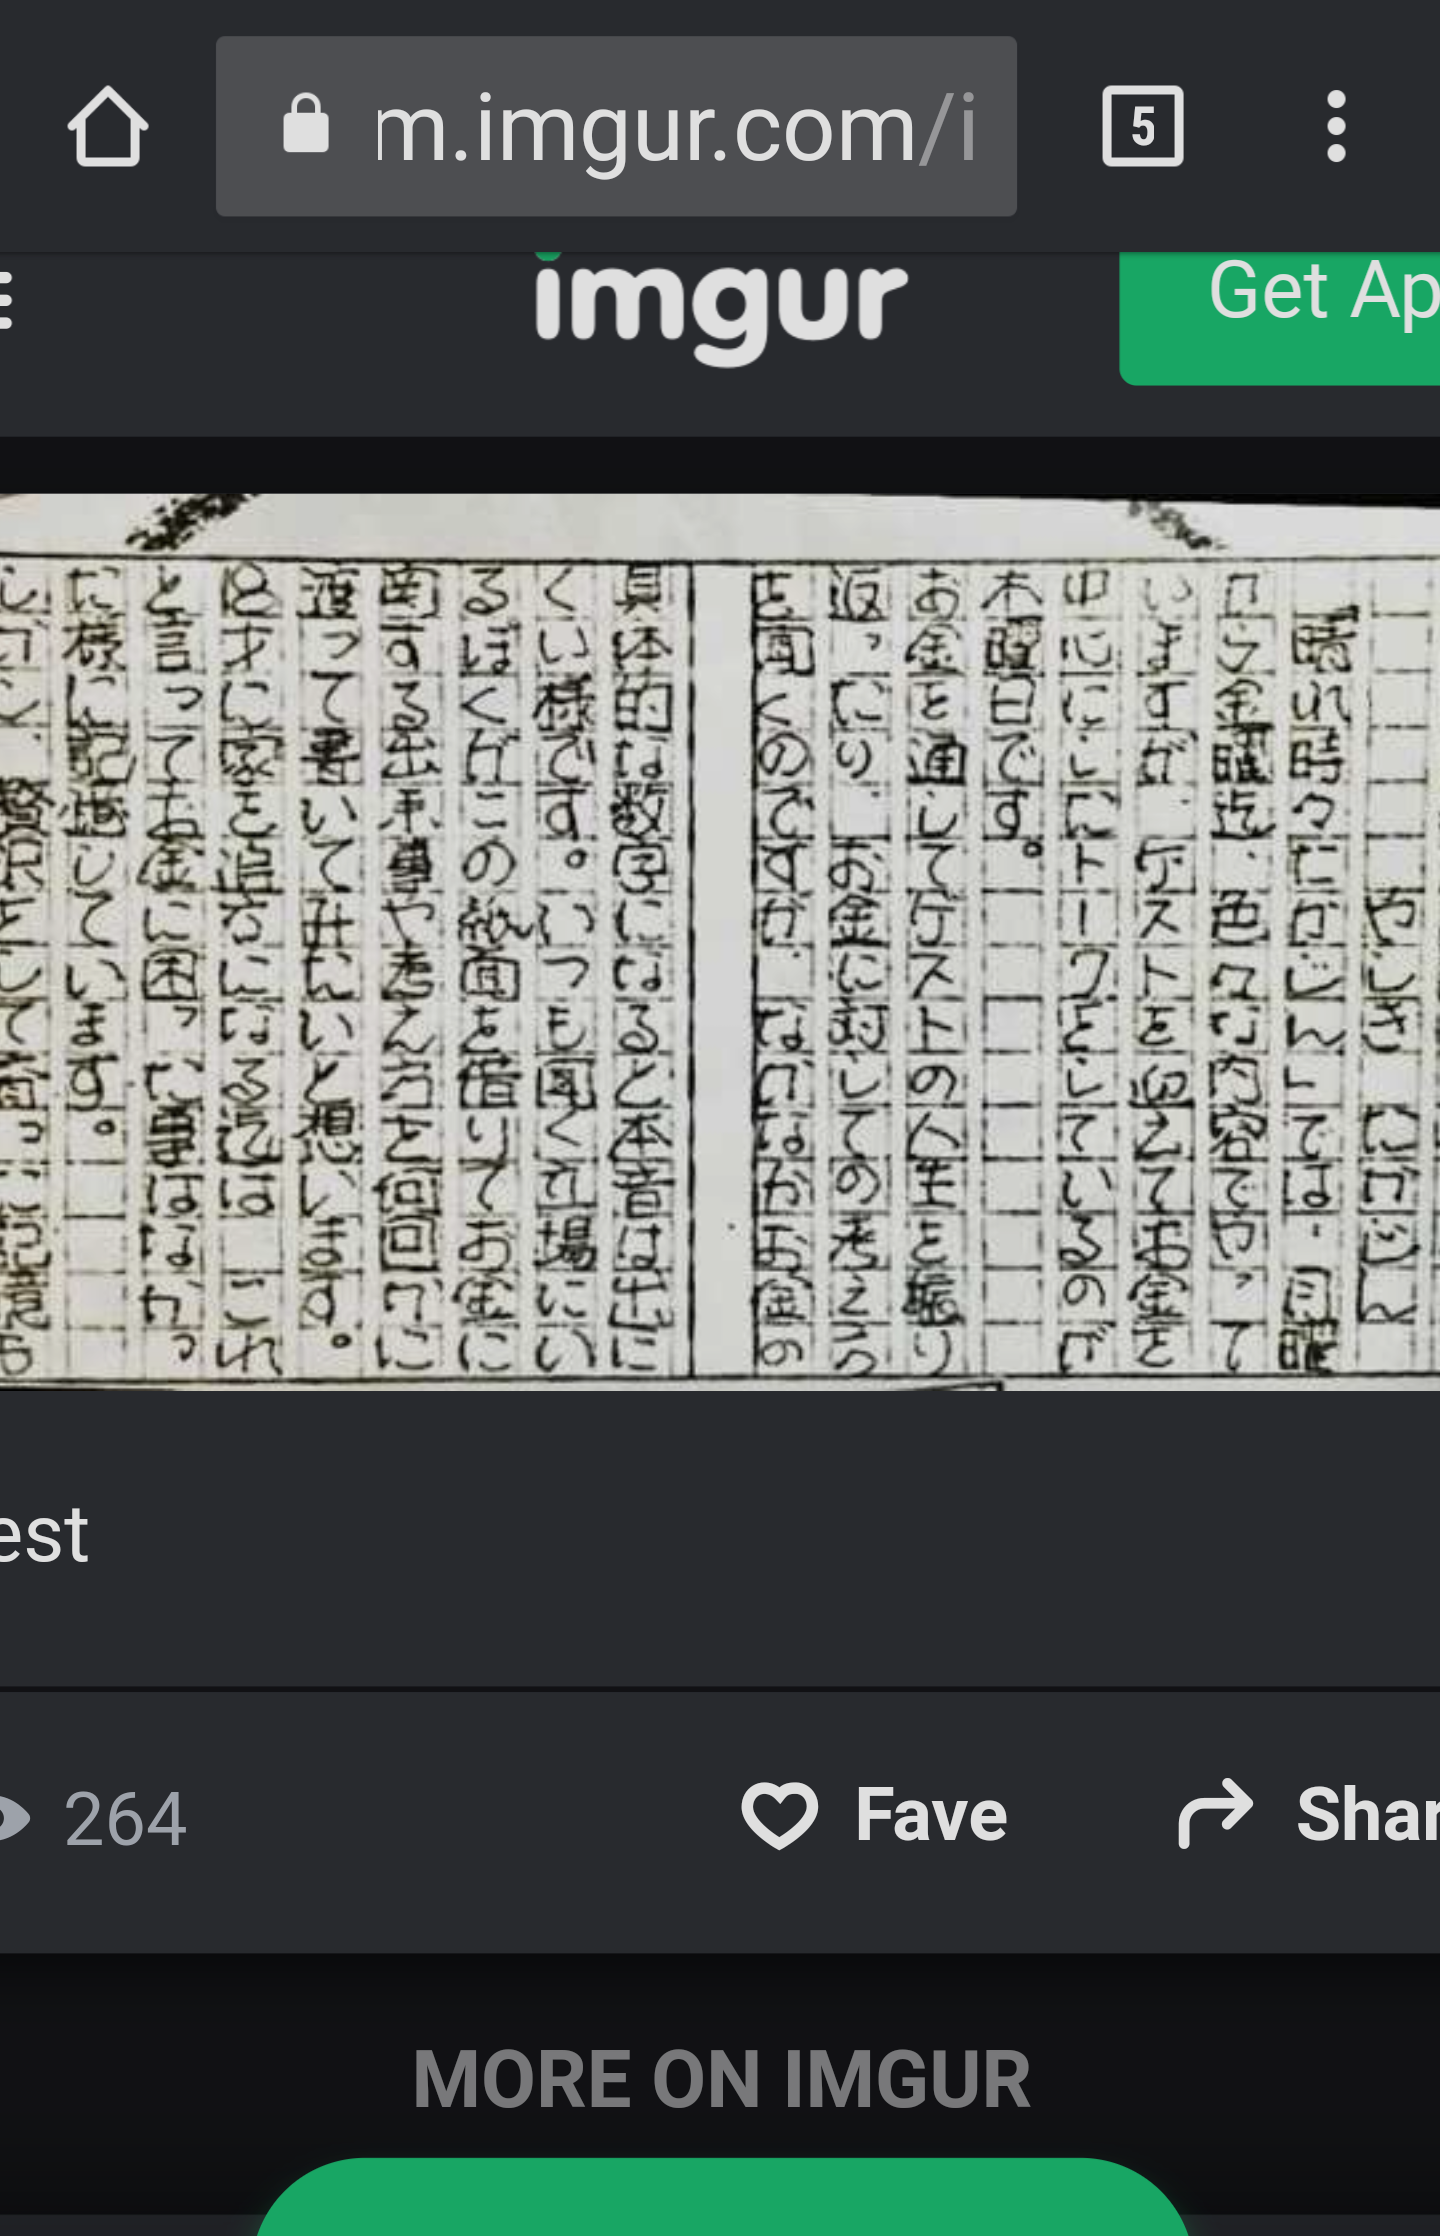 m.imgur.com/i
5
imgur
Get Ap
やしき たかじん
晴れ時々たかじん」では、月曜
から金曜迄、色々な内容でやって
いますが、ゲストを迎えてお金を
中心にしたトークをしているのが
木曜日です。
お金を通してゲストの人生を振り
返ったり、お金に対しての考え方
を聞くのですが、なかなかお金の
具体的な数字になると本音は出に
くい様です。いつも聞く立場にい
るぼくがこの紙面を借りてお金に
関する出来事や考え方を何回かに
渡って書いてみたいと想います。
18才に家を追方になる迄は これ
と言ってお金に困った事はなかっ
た様に記憶しています。
しかし、贅沢をして育った記憶も
est
264
Fave
Shar
MORE ON IMGUR